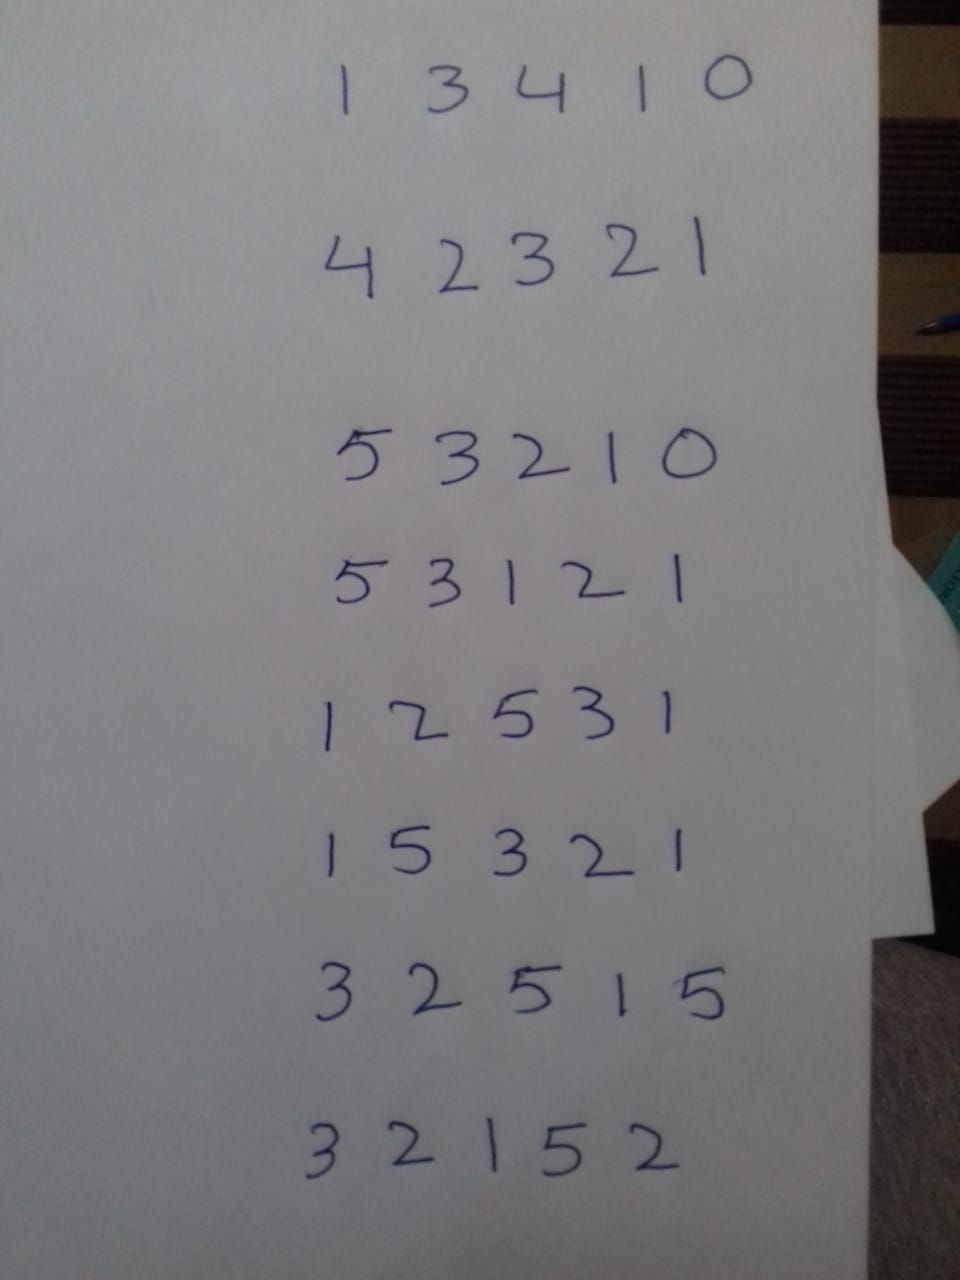 1 3 4 1 0
4 2 3 2 1
5 3 2 1 0
5 3 1 2 1
1 2 5 3 1
1 5 3 2 1
3 2 5 1 5
3 2 1 5 2